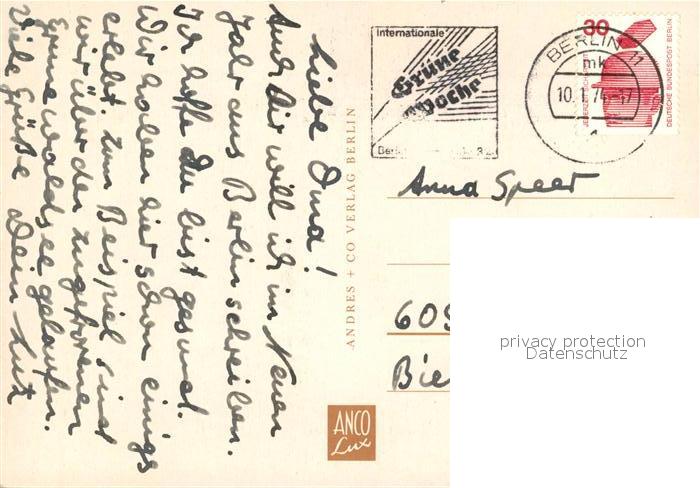 Liebe Oma!
Auch Dir will ich im Neuen
Jahr aus Berlin schreiben.
Ich hoffe Du bist gesund.
Wir haben hier schon einiges
erlebt. Zum Beispiel sind
wir über den zugefrorenen
Grunewaldsee gelaufen.
Viele Grüße Dein Lutz
ANDRES + CO VERLAG BERLIN
ANCO
Lux
Internationale
Grüne
Woche
30
DEUTSCHE BUNDESPOST BERLIN
BERLIN 11
mk
10.1.74-17
Anna Speer
605
Bie
privacy protection
Datenschutz